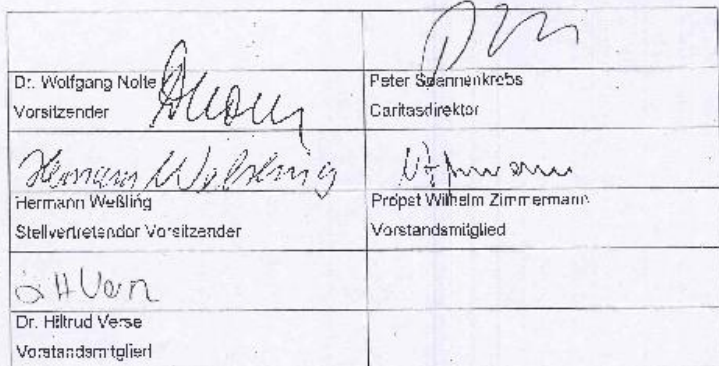 Dr. Wolfgang Nolte
Vorsitzender
Peter Spannenkrebs
Caritasdirektor
Hermann Weßling
Hermann Weßling
Stellvertretender Vorsitzender
Propst Wilhelm Zimmermann
Vorstandsmitglied
Dr. Hiltrud Verse
Vorstandsmitglied